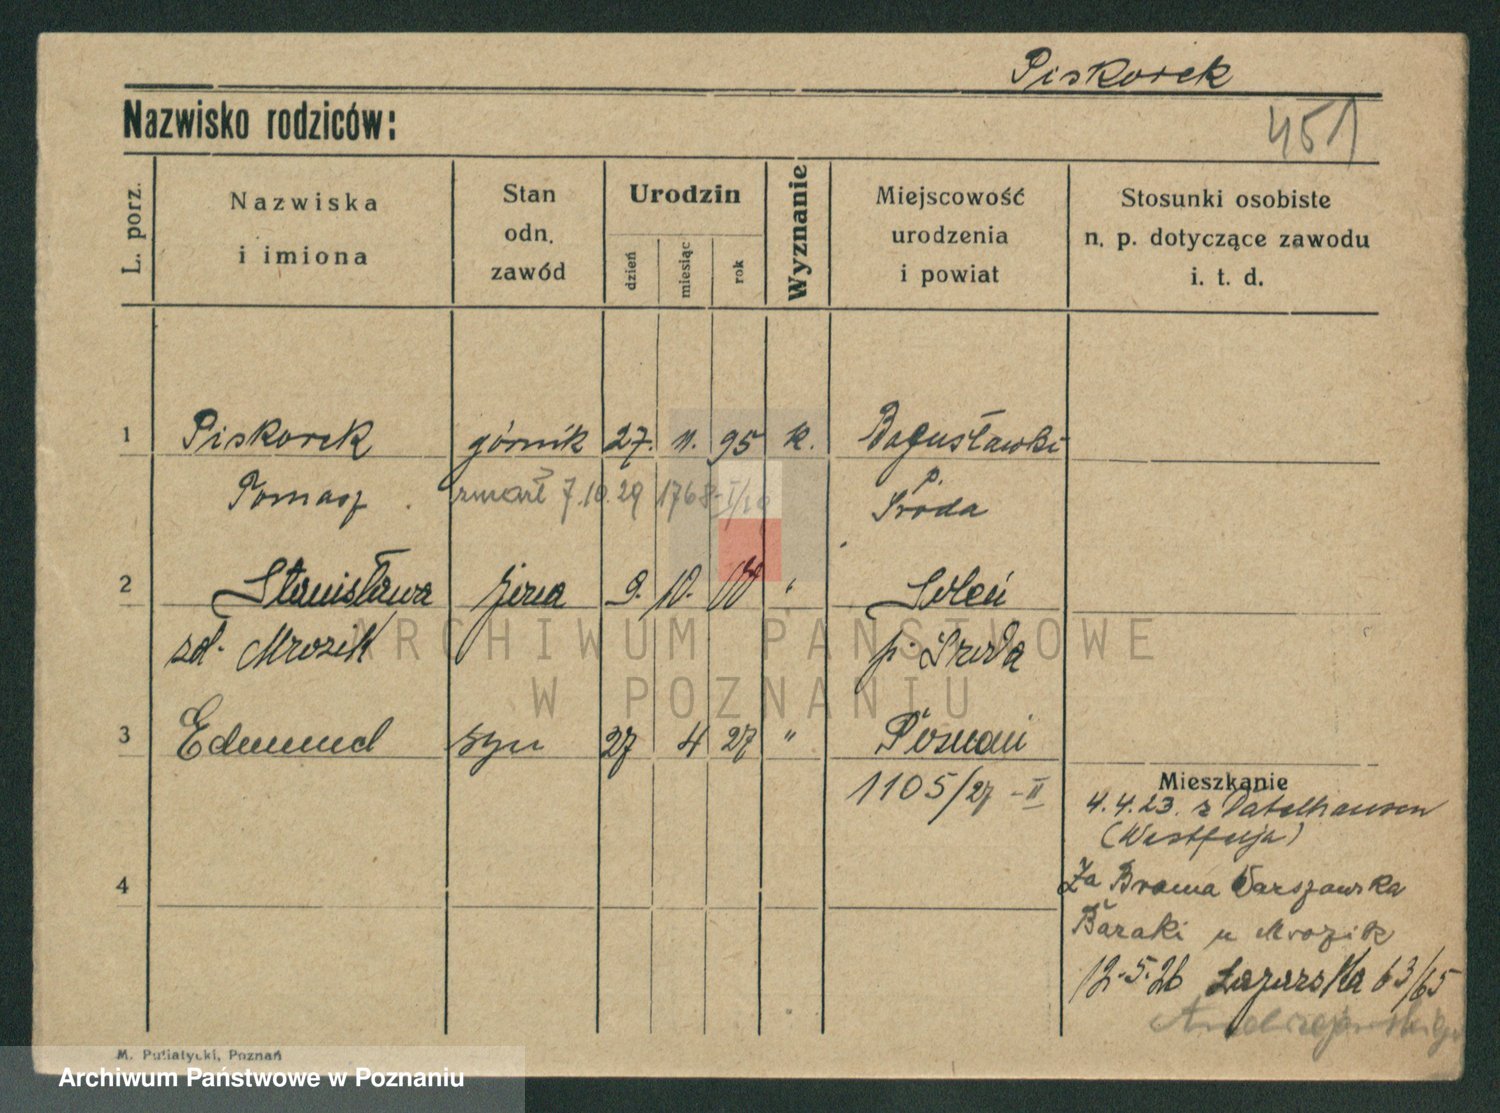 Piskorek
Nazwisko rodziców:
451
L. porz.
Nazwiska
i imiona
Stan
odn.
zawód
Urodzin
dzień
miesiąc
rok
Wyznanie
Miejscowość
urodzenia
i powiat
Stosunki osobiste
n. p. dotyczące zawodu
i. t. d.
1 Piskorek górnik 27. 11. 95 k. Bogusławki
Tomasz zmarł 7.10.29 1768 p. Środa
2 Stanisława żona 9. 10. "
zd. Mrozik p. Środa
3 Edmund syn 27 4 27 " Poznań
1105/27 - II
Mieszkanie
4.4.23. z Datelhausen
(Westfalja)
4
Za Bramą Warszawska
Baraki u Mrozik
12.5.26 Łazarska 63/65
M. Putiatycki, Poznań
ARCHIWUM PAŃSTWOWE
W POZNANIU
Archiwum Państwowe w Poznaniu